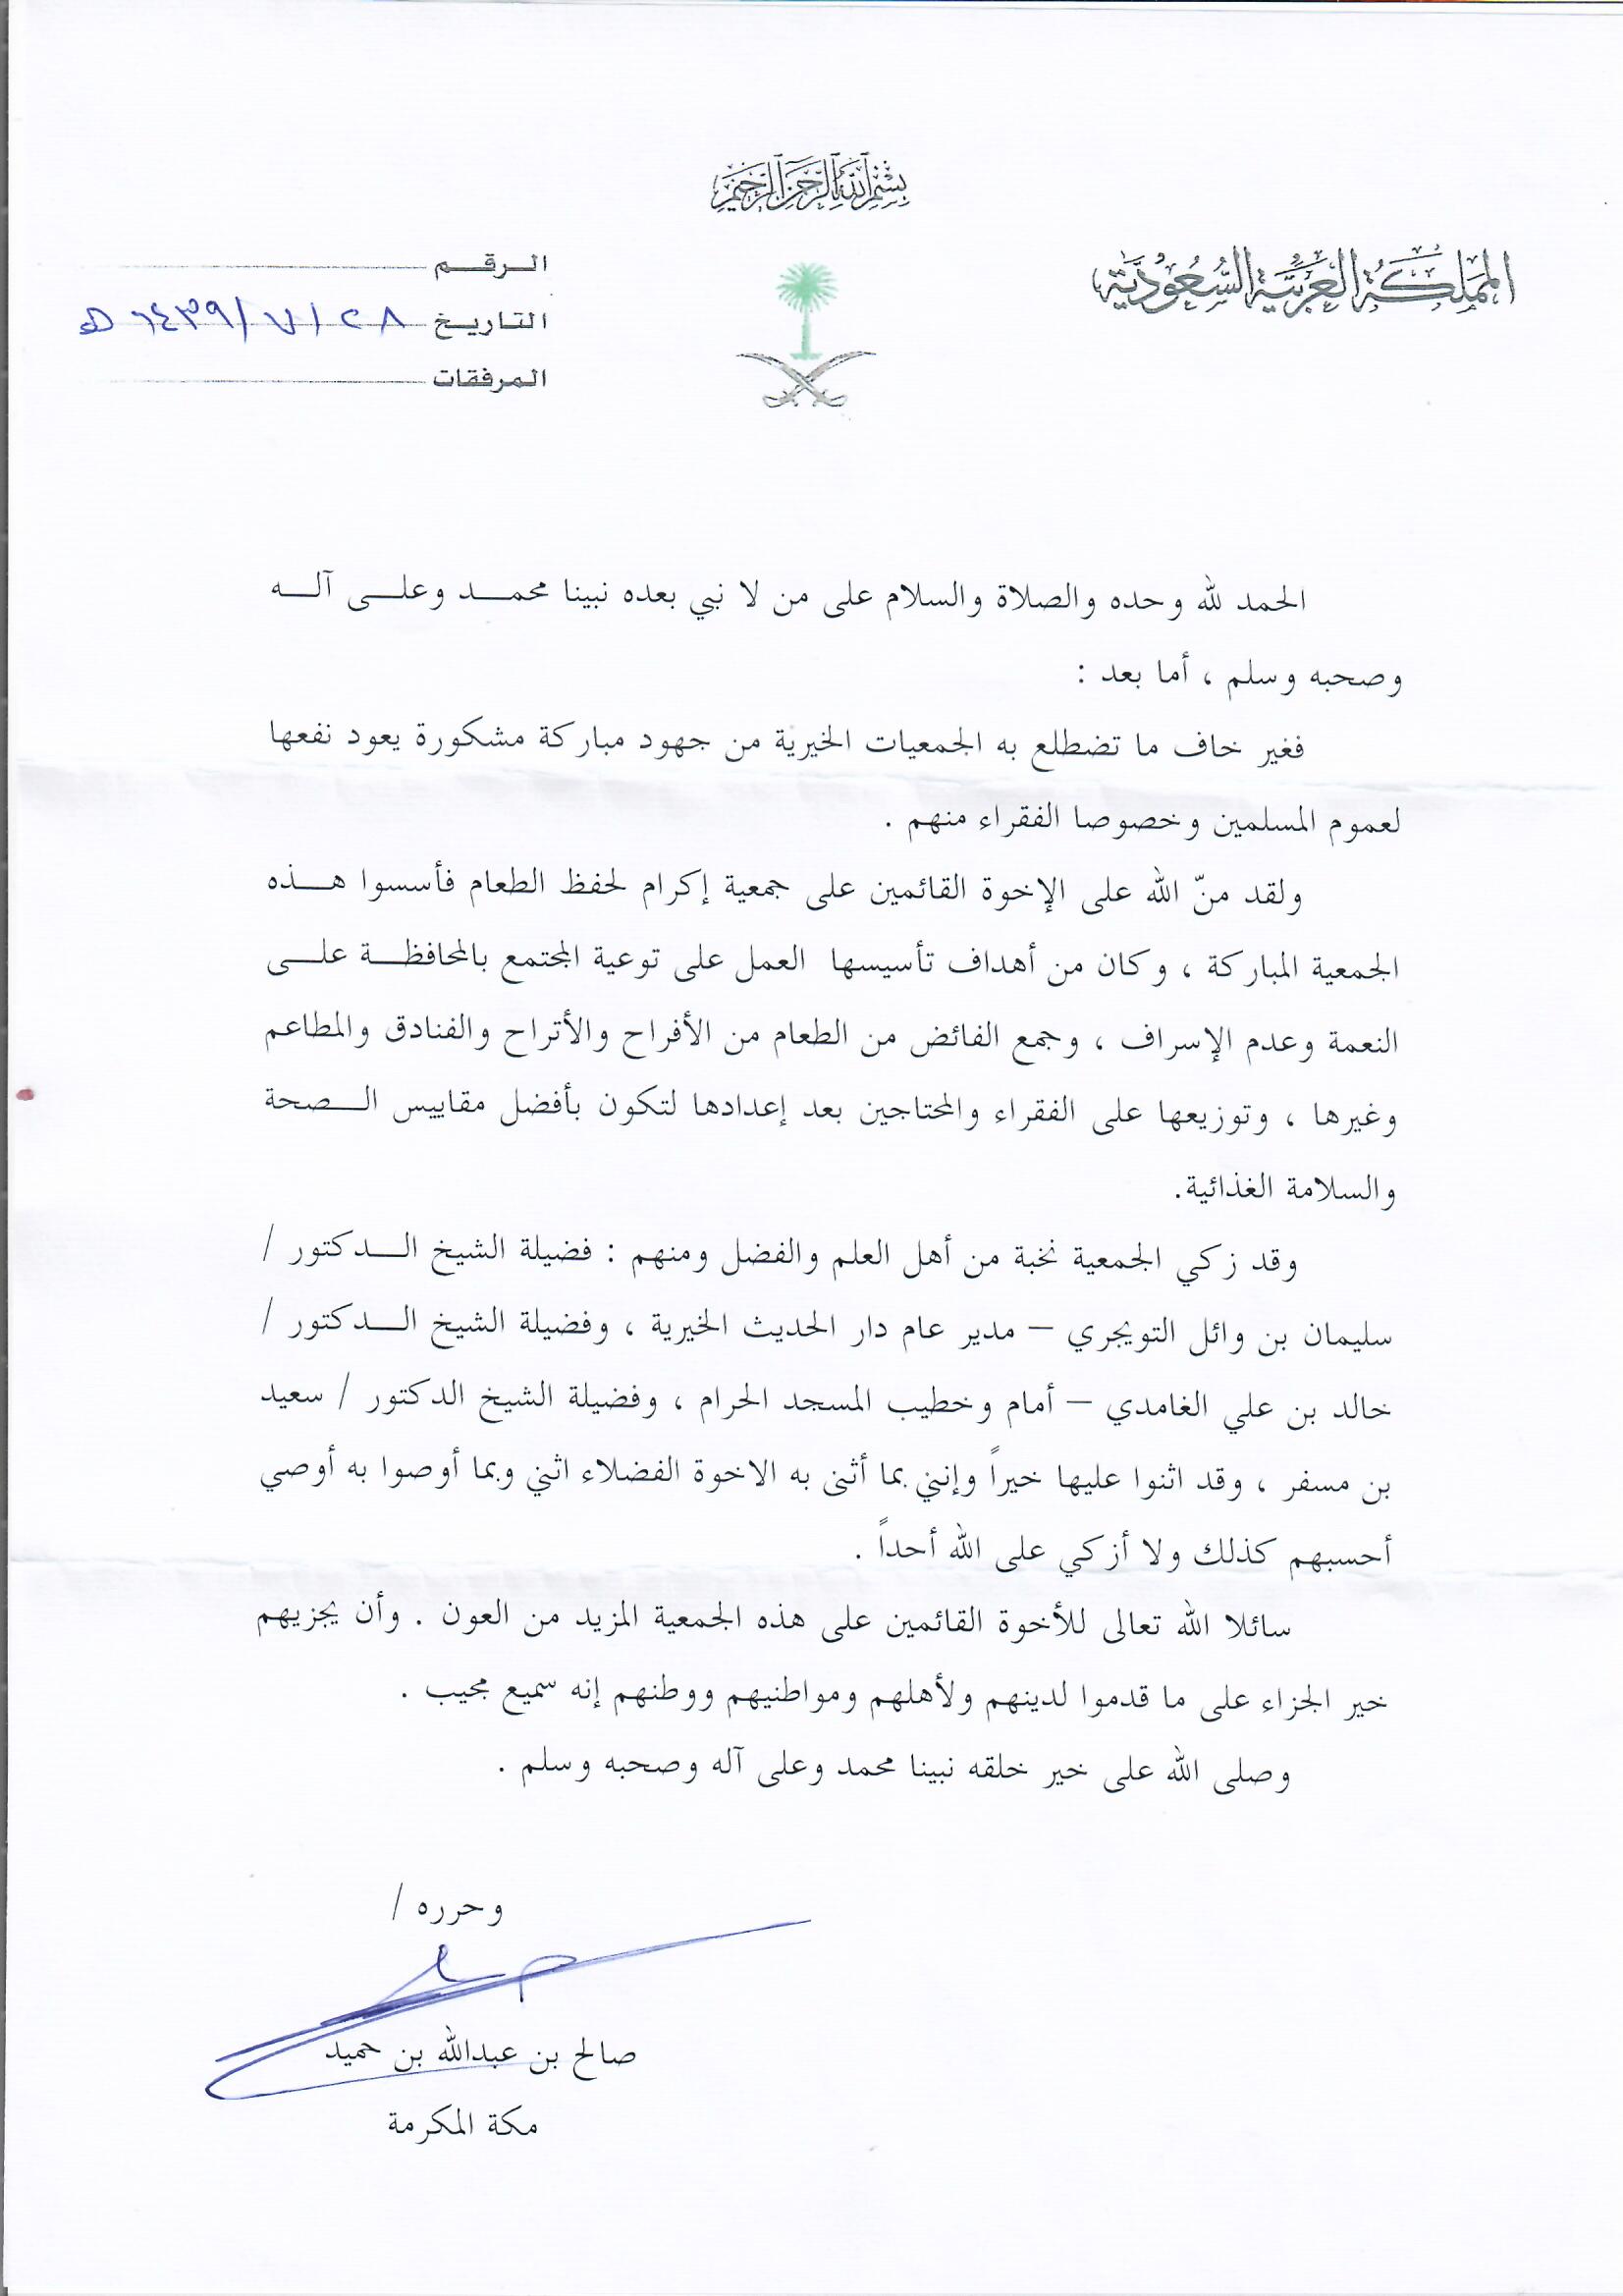 بِسْمِ اللَّهِ الرَّحْمَنِ الرَّحِيمِ
المملكة العربية السعودية
الرقم
التاريخ ٢٨/٧/١٤٣٩ هـ
المرفقات
الحمد لله وحده والصلاة والسلام على من لا نبي بعده نبينا محمد وعلى آله
وصحبه وسلم ، أما بعد :
فغير خاف ما تضطلع به الجمعيات الخيرية من جهود مباركة مشكورة يعود نفعها
لعموم المسلمين وخصوصا الفقراء منهم .
ولقد منّ الله على الإخوة القائمين على جمعية إكرام لحفظ الطعام فأسسوا هذه
الجمعية المباركة ، وكان من أهداف تأسيسها العمل على توعية المجتمع بالمحافظة على
النعمة وعدم الإسراف ، وجمع الفائض من الطعام من الأفراح والأتراح والفنادق والمطاعم
وغيرها ، وتوزيعها على الفقراء والمحتاجين بعد إعدادها لتكون بأفضل مقاييس الصحة
والسلامة الغذائية.
وقد زكي الجمعية نخبة من أهل العلم والفضل ومنهم : فضيلة الشيخ الدكتور /
سليمان بن وائل التويجري – مدير عام دار الحديث الخيرية ، وفضيلة الشيخ الدكتور /
خالد بن علي الغامدي – أمام وخطيب المسجد الحرام ، وفضيلة الشيخ الدكتور / سعيد
بن مسفر ، وقد اثنوا عليها خيراً وإنني بما أثنى به الاخوة الفضلاء اثني وبما أوصوا به أوصي
أحسبهم كذلك ولا أزكي على الله أحداً .
سائلا الله تعالى للأخوة القائمين على هذه الجمعية المزيد من العون . وأن يجزيهم
خير الجزاء على ما قدموا لدينهم ولأهلهم ومواطنيهم ووطنهم إنه سميع مجيب .
وصلى الله على خير خلقه نبينا محمد وعلى آله وصحبه وسلم .
وحرره /
صالح بن عبدالله بن حميد
مكة المكرمة